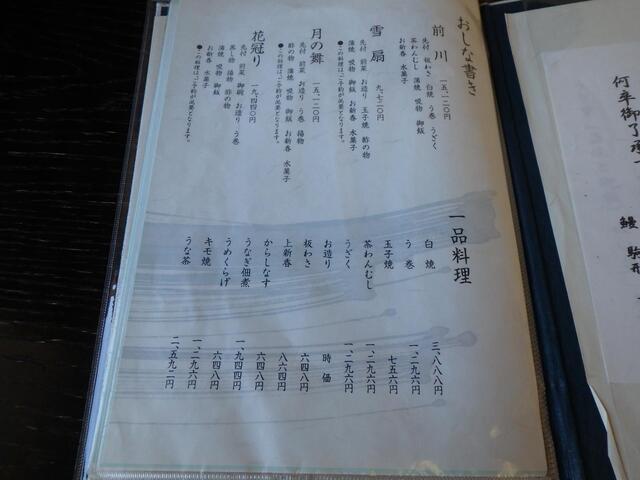 おしな書き
前川 一五、一二〇円
先付 板わさ 白焼 う巻 うざく
茶わんむし 蒲焼 吸物 御飯
お新香 水菓子
雪扇 九、七二〇円
先付 前菜 お造り 玉子焼 酢の物
蒲焼 吸物 御飯 お新香 水菓子
●この料理はご予約が必要となります。
月の舞 一五、一二〇円
先付 前菜 お造り う巻 揚物
酢の物 蒲焼 吸物 御飯 お新香 水菓子
●この料理はご予約が必要となります。
花冠り 一九、四四〇円
先付 前菜 御椀 お造り う巻
蒸し物 揚物 酢の物
蒲焼 吸物 御飯
お新香 水菓子
●この料理はご予約が必要となります。
一品料理
白焼 三、八八八円
う巻 一、二九六円
玉子焼 七五六円
茶わんむし 一、二九六円
うざく 一、二九六円
お造り 時価
板わさ 六四八円
上新香 八六四円
からしなす 六四八円
うなぎ佃煮 一、九四四円
うめくらげ 六四八円
キモ焼 一、二九六円
うな茶 二、五九二円
何卒御了承
鰻 駒形